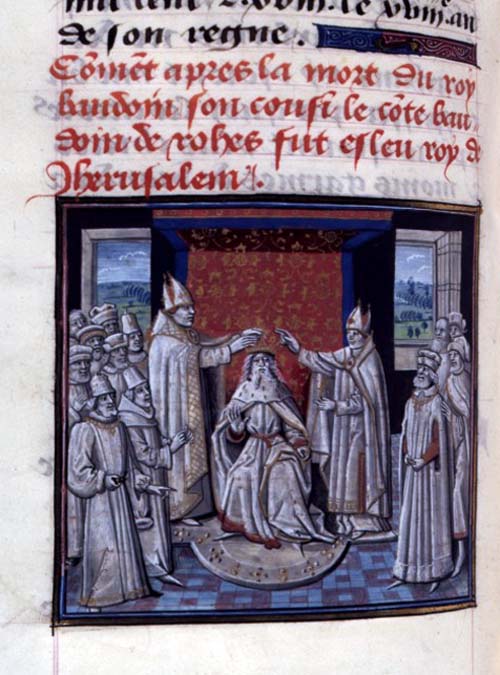 cent xviii. le xviii. an
de son regne .
Cōmēt apres la mort du roy
baudoin son cousī le cōte bau
doin de rohes fut esleu roy de
Jherusalem .